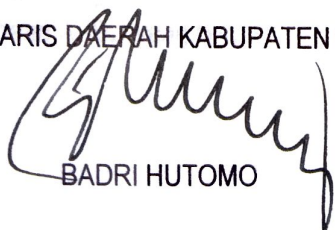 ARIS DAERAH KABUPATEN
BADRI HUTOMO